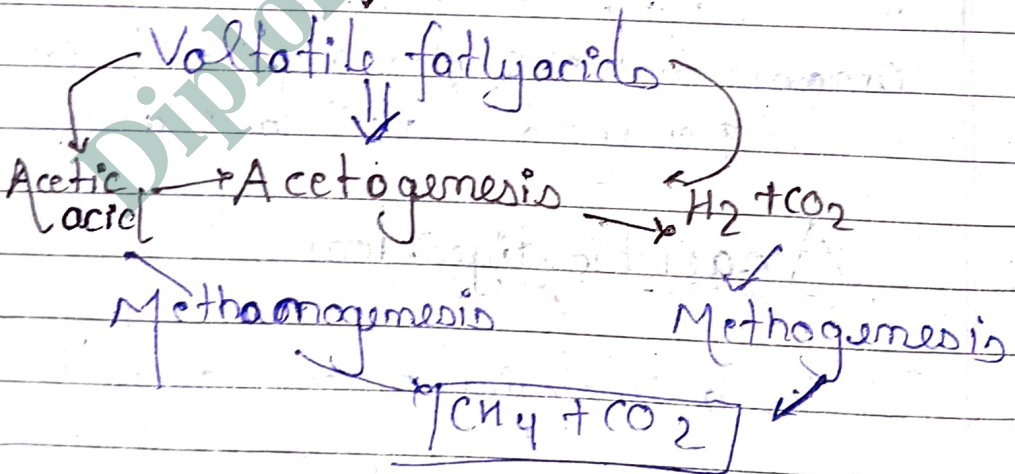 Valtatile fatlyacids
Acetic acid → Acetogenesis → H2 + CO2
Methamogenesis
Methogenesis
CH4 + CO2
Diplo